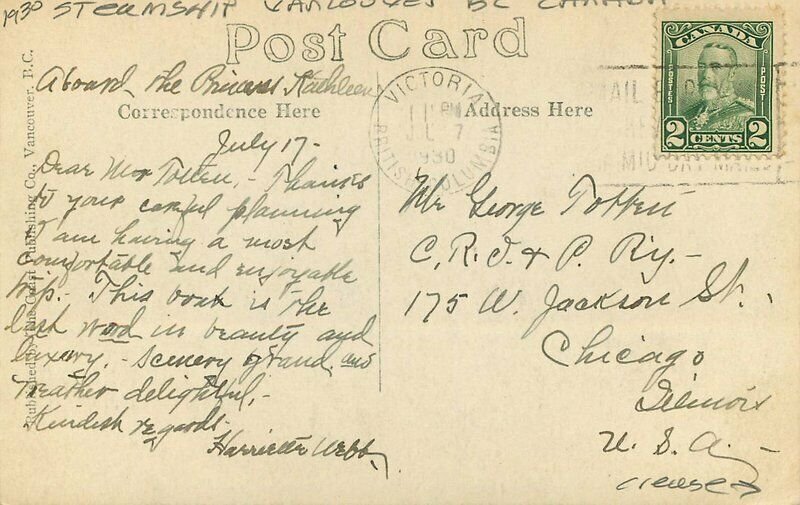 1930 STEAMSHIP VANCOUVER BC CANADA
Post Card
Aboard the Princess Kathleen
Correspondence Here
July 17-
Dear Mr Totten,- Thanks
to your careful planning
I am having a most
comfortable and enjoyable
trip. This boat is the
last word in beauty and
luxury.- Scenery grand, and
weather delightful,-
Kindest regards.
Harriette Webb
Published by The Coast Publishing Co., Vancouver, B.C.
VICTORIA
PM
1930
BRITISH COLUMBIA
CANADA
POSTES
POST
2 CENTS 2
Address Here
Mr George Totten
C, R. I. & P. Ry.-
175 W. Jackson St.,
Chicago
Illinois
U. S. A.
crease